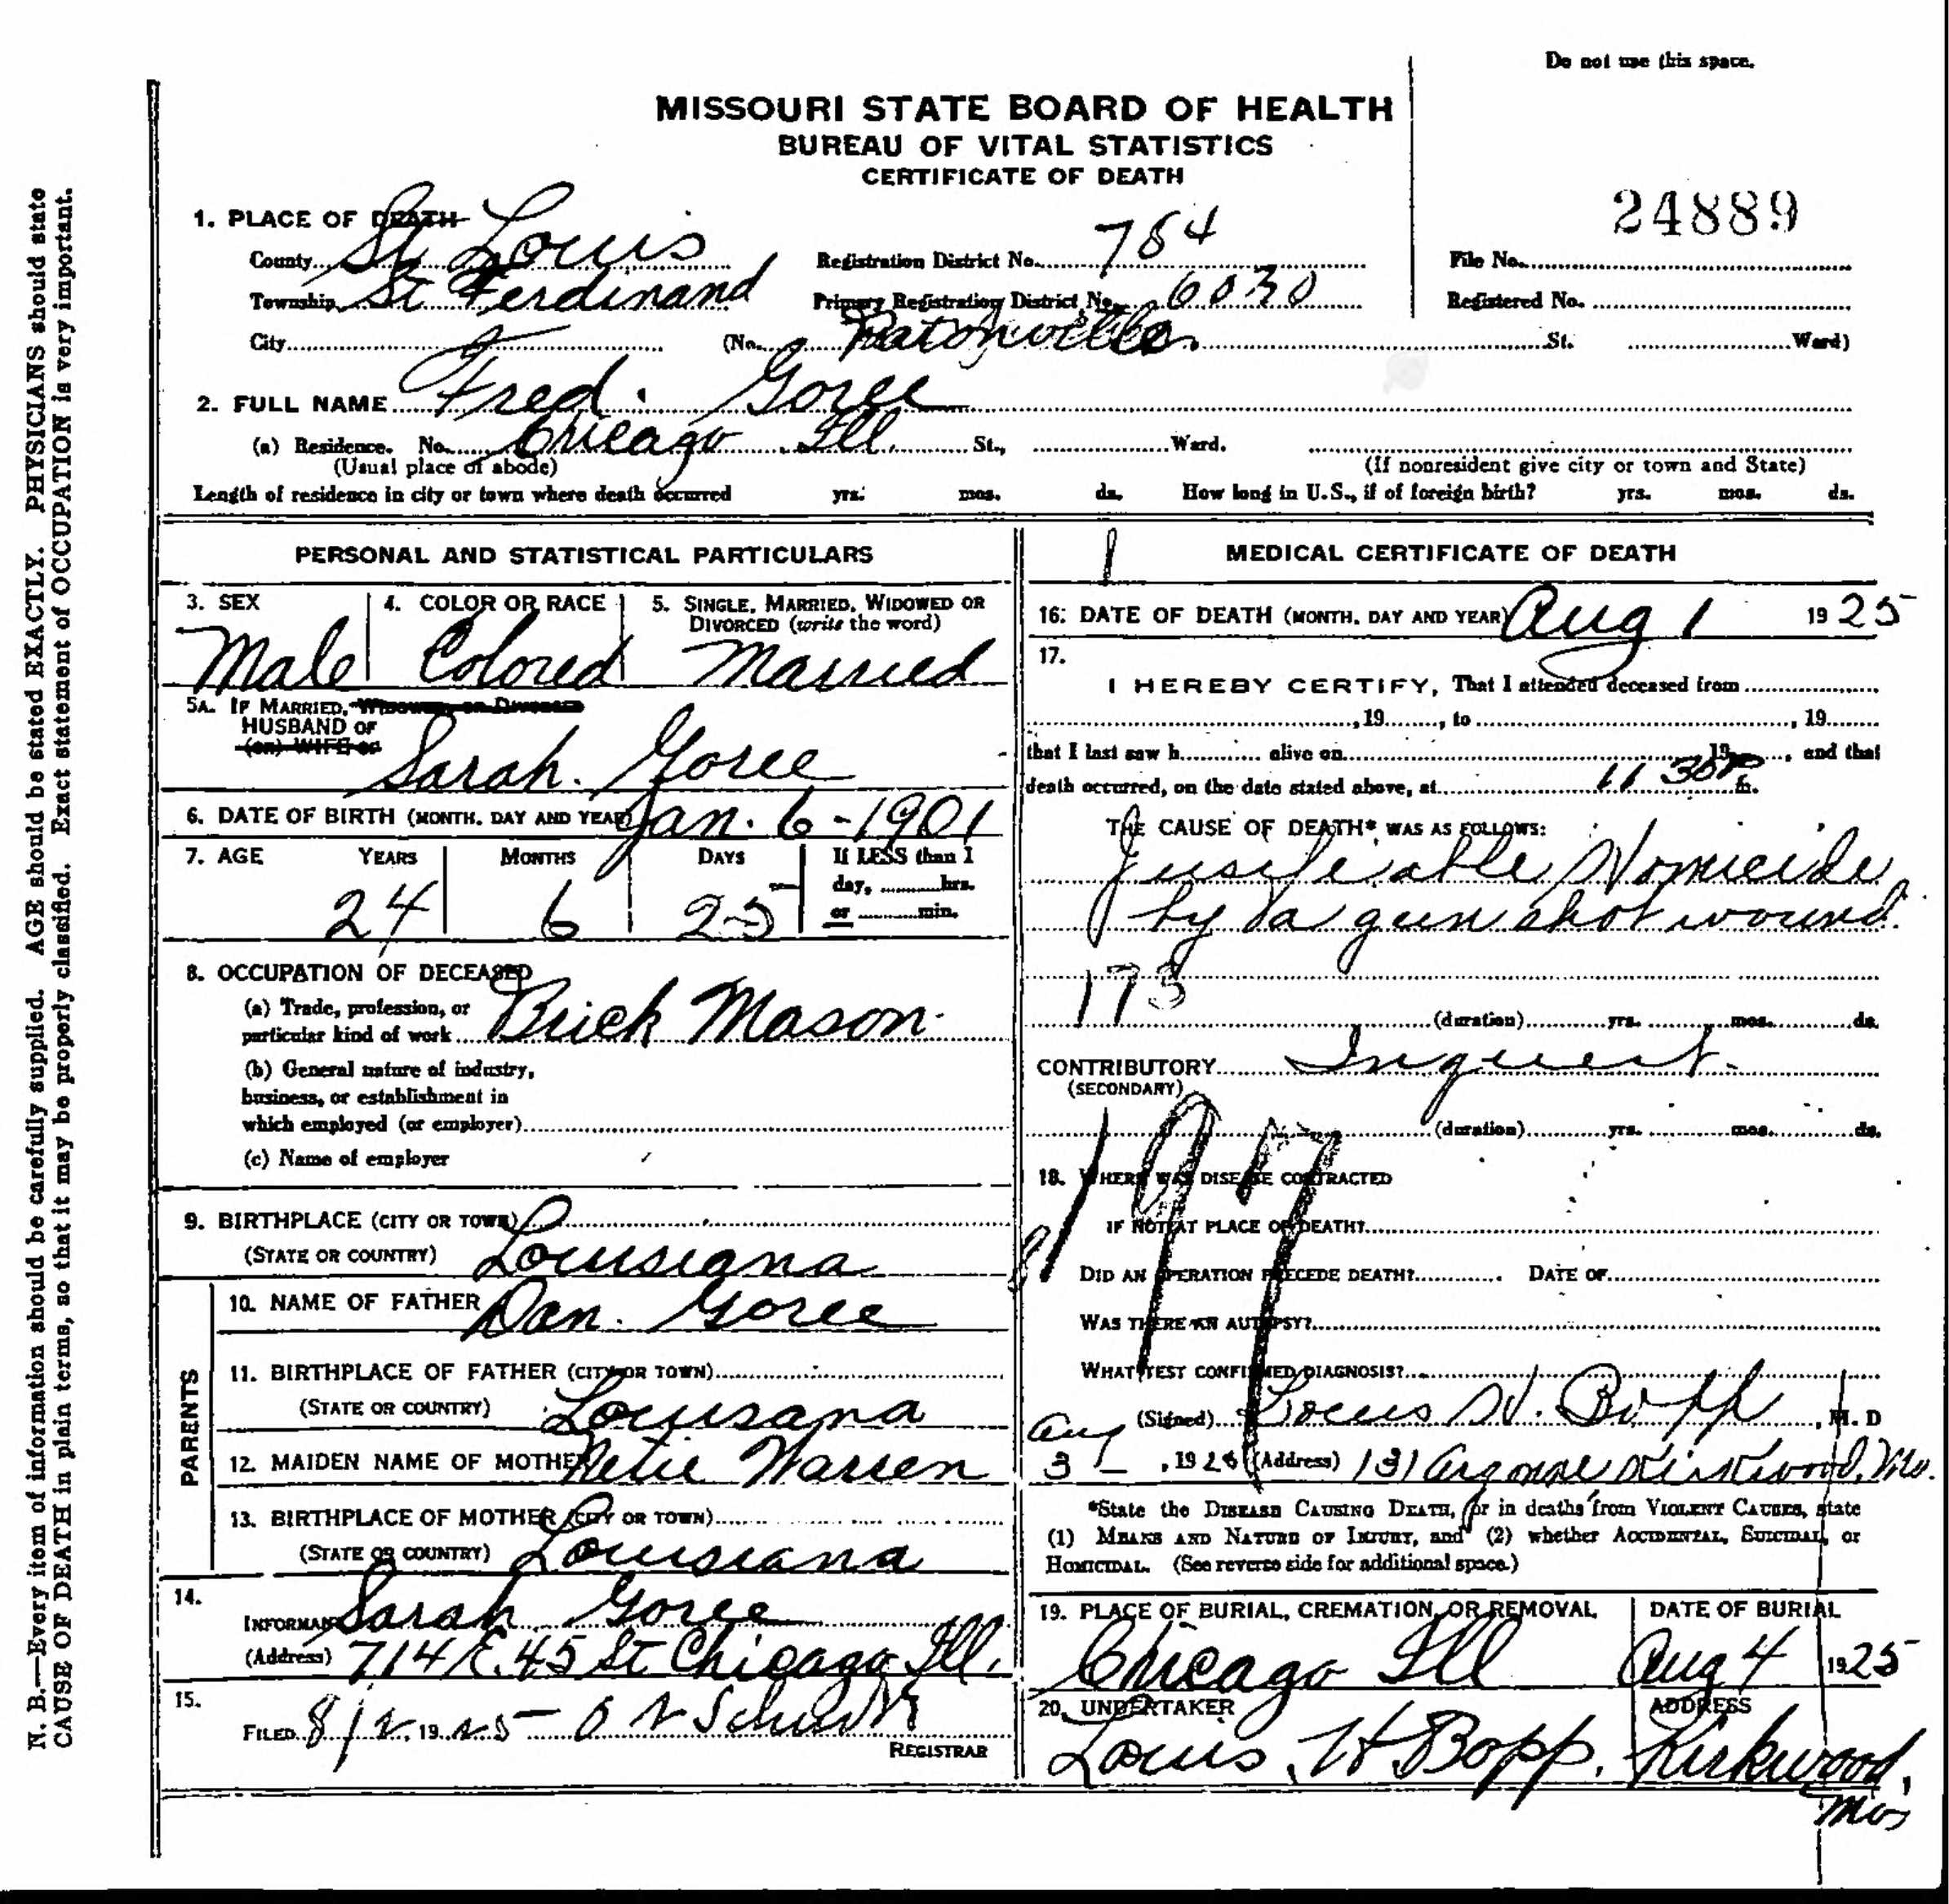 Do not use this space.
MISSOURI STATE BOARD OF HEALTH
BUREAU OF VITAL STATISTICS
CERTIFICATE OF DEATH
24889
1. PLACE OF DEATH
County St Louis Registration District No. 784 File No.
Township St Ferdinand Primary Registration District No. 6030 Registered No.
City (No. Patonville St. Ward)
2. FULL NAME Fred. Goree
(a) Residence. No. Chicago Ill. St., Ward.
(Usual place of abode) (If nonresident give city or town and State)
Length of residence in city or town where death occurred yrs. mos. ds. How long in U.S., if of foreign birth? yrs. mos. ds.
PERSONAL AND STATISTICAL PARTICULARS
3. SEX 4. COLOR OR RACE 5. SINGLE, MARRIED, WIDOWED OR
DIVORCED (write the word)
Male Colored Married
5A. IF MARRIED, WIDOWED, OR DIVORCED
HUSBAND OF
(OR) WIFE OF
Sarah. Goree
6. DATE OF BIRTH (MONTH, DAY AND YEAR) Jan. 6-1901
7. AGE YEARS MONTHS DAYS If LESS than 1
day, hrs.
or min.
24 6 25
8. OCCUPATION OF DECEASED
(a) Trade, profession, or
particular kind of work Brick Mason
(b) General nature of industry,
business, or establishment in
which employed (or employer)
(c) Name of employer
9. BIRTHPLACE (CITY OR TOWN)
(STATE OR COUNTRY) Louisiana
PARENTS
10. NAME OF FATHER Dan. Goree
11. BIRTHPLACE OF FATHER (CITY OR TOWN)
(STATE OR COUNTRY) Louisana
12. MAIDEN NAME OF MOTHER Netie Warren
13. BIRTHPLACE OF MOTHER (CITY OR TOWN)
(STATE OR COUNTRY) Louisiana
14.
INFORMANT Sarah Goree
(Address) 714 E. 45 St Chicago Ill.
15.
FILED 8/2, 1925
REGISTRAR
1 MEDICAL CERTIFICATE OF DEATH
16. DATE OF DEATH (MONTH, DAY AND YEAR) Aug 1 1925
17.
I HEREBY CERTIFY, That I attended deceased from
, 19, to , 19
that I last saw h alive on 19, and that
death occurred, on the date stated above, at 11 30 P m.
THE CAUSE OF DEATH* WAS AS FOLLOWS:
Jusifeable Homicide
by a gun shot wound.
173
(duration) yrs. mos. ds.
CONTRIBUTORY Inquest.
(SECONDARY)
(duration) yrs. mos. ds.
197
18. WHERE WAS DISEASE CONTRACTED
IF NOT AT PLACE OF DEATH?
DID AN OPERATION PRECEDE DEATH? DATE OF
WAS THERE AN AUTOPSY?
WHAT TEST CONFIRMED DIAGNOSIS?
(Signed) H. Bopp, M. D
Aug 3 - , 1925 (Address) 131 Argonne Kirkwood, Mo.
*State the DISEASE CAUSING DEATH, or in deaths from VIOLENT CAUSES, state
(1) MEANS AND NATURE OF INJURY, and (2) whether ACCIDENTAL, SUICIDAL, or
HOMICIDAL. (See reverse side for additional space.)
19. PLACE OF BURIAL, CREMATION, OR REMOVAL DATE OF BURIAL
Chicago Ill Aug 4 1925
20. UNDERTAKER ADDRESS
Louis H Bopp. Kirkwood,
Mo,
N. B.—Every item of information should be carefully supplied. AGE should be stated EXACTLY. PHYSICIANS should state
CAUSE OF DEATH in plain terms, so that it may be properly classified. Exact statement of OCCUPATION is very important.